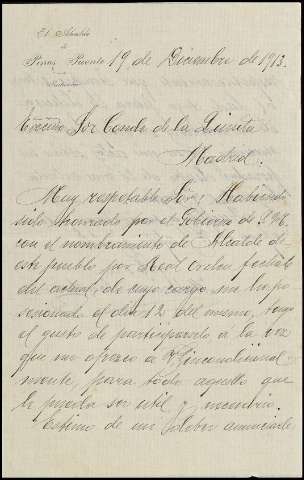 El Alcalde
de
Pinos Puente 19 de Diciembre de 1913.
Excmo Sor Conde de la
Madrid.
Muy respetable Sor: Habiendo
sido honrado por el Gobierno de S. M.
con el nombramiento de Alcalde de
este pueblo por Real orden fechada
del actual, de cuyo cargo me he po-
sesionado el dia 12 del mismo, tengo
el gusto de participarselo a la vez
que me ofrezco a V. incondicional-
mente, para todo aquello que
le pueda ser util y necesario.
Estimo de mi deber anunciarle